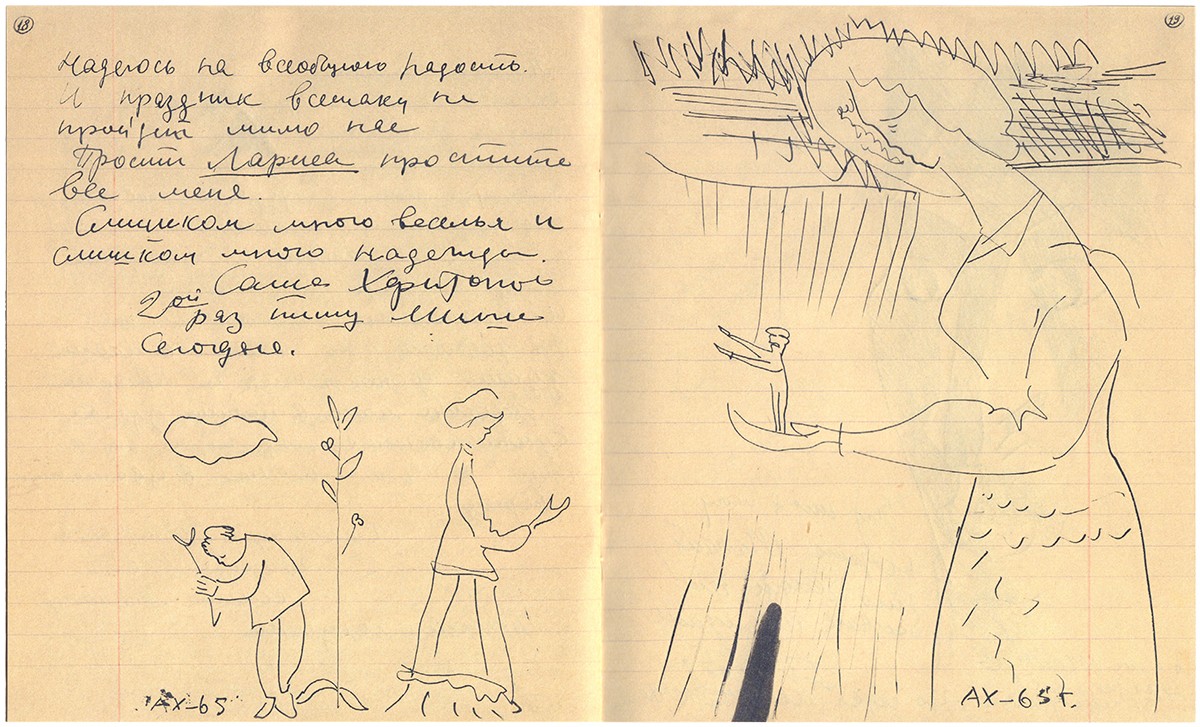 18
Надеюсь на всеобщую радость.
И праздник всетаки не
пройдет мимо нас
Прости Лариса простите
все меня.
Слишком много веселья и
слишком много надежды.
Саша Харитонов
2ой раз пишу Мише
Сегодня.
АХ-65
19
АХ-65г.